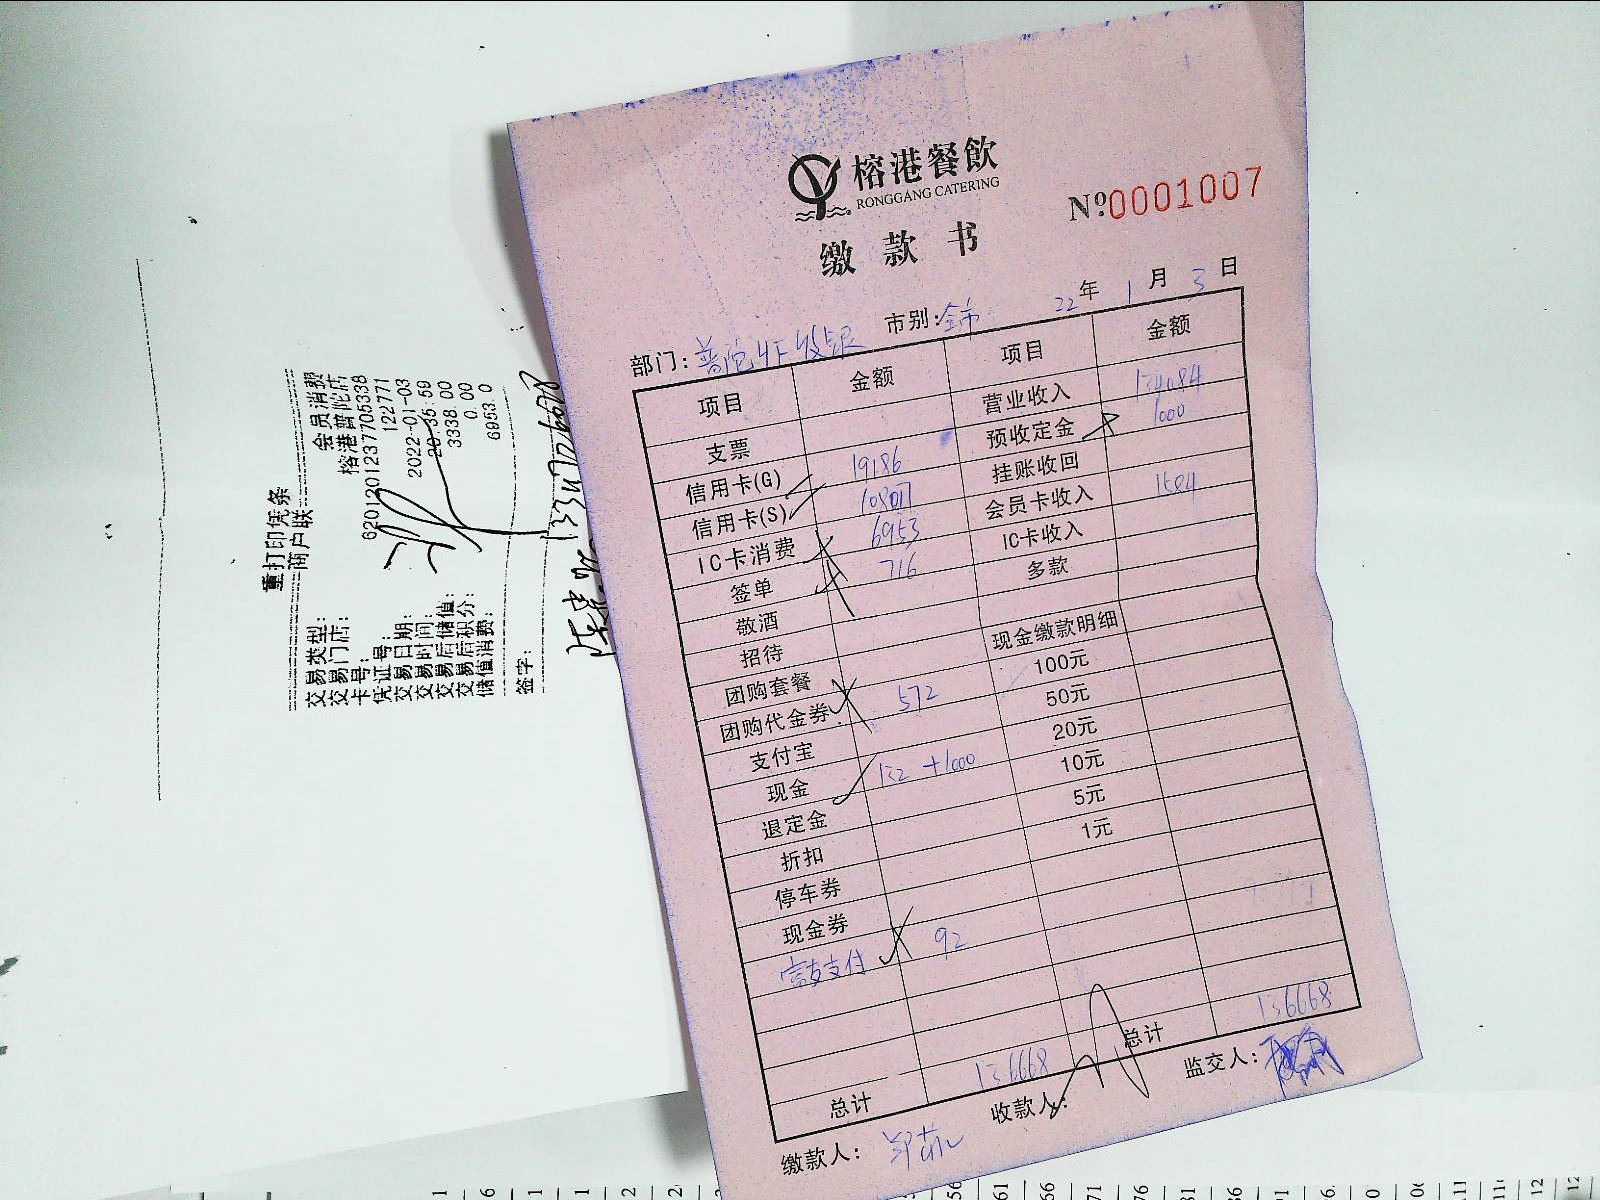 榕港餐飲
RONGGANG CATERING
Nº0001007
缴款书
22年1月3日
部门:普陀店收银 市别:全市
项目 金额 项目 金额
支票 营业收入 134084
信用卡(G) 19186 预收定金 1000
信用卡(S) 108017 挂账收回
IC卡消费 6953 会员卡收入 1584
签单 716 IC卡收入
敬酒 多款
招待
团购套餐 现金缴款明细
团购代金券 572 100元
支付宝 50元
现金 132 +1000 20元
退定金 10元
折扣 5元
停车券 1元
现金券
支付 92
总计 136668 总计 136668
缴款人: 收款人: 监交人:
重打印凭条
商户联
交易类型: 会员消费
交易门店: 榕港普陀店
卡号: 6201201237705338
凭证号: 122771
交易日期: 2022-01-03
交易时间: 20:35:59
交易后储值: 3338.00
交易后积分: 0.00
储值消费: 6953.0
签字: